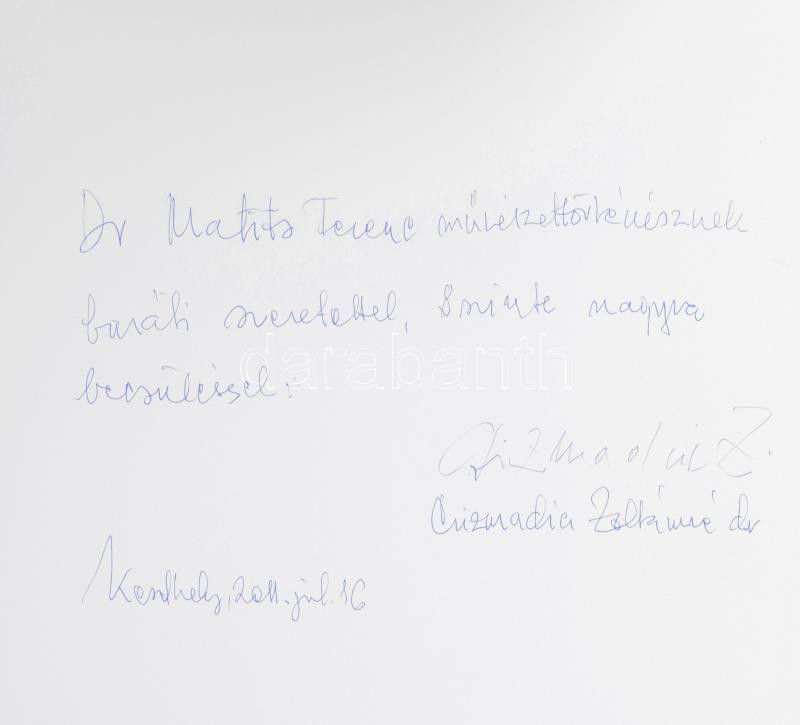 Dr Matits Ferenc művészettörténésznek
baráti szeretettel, őszinte nagyra
becsüléssel:
darabanth
Csizmadia Z.
Csizmadia Zoltánné dr
Keszthely, 2011. júl. 16